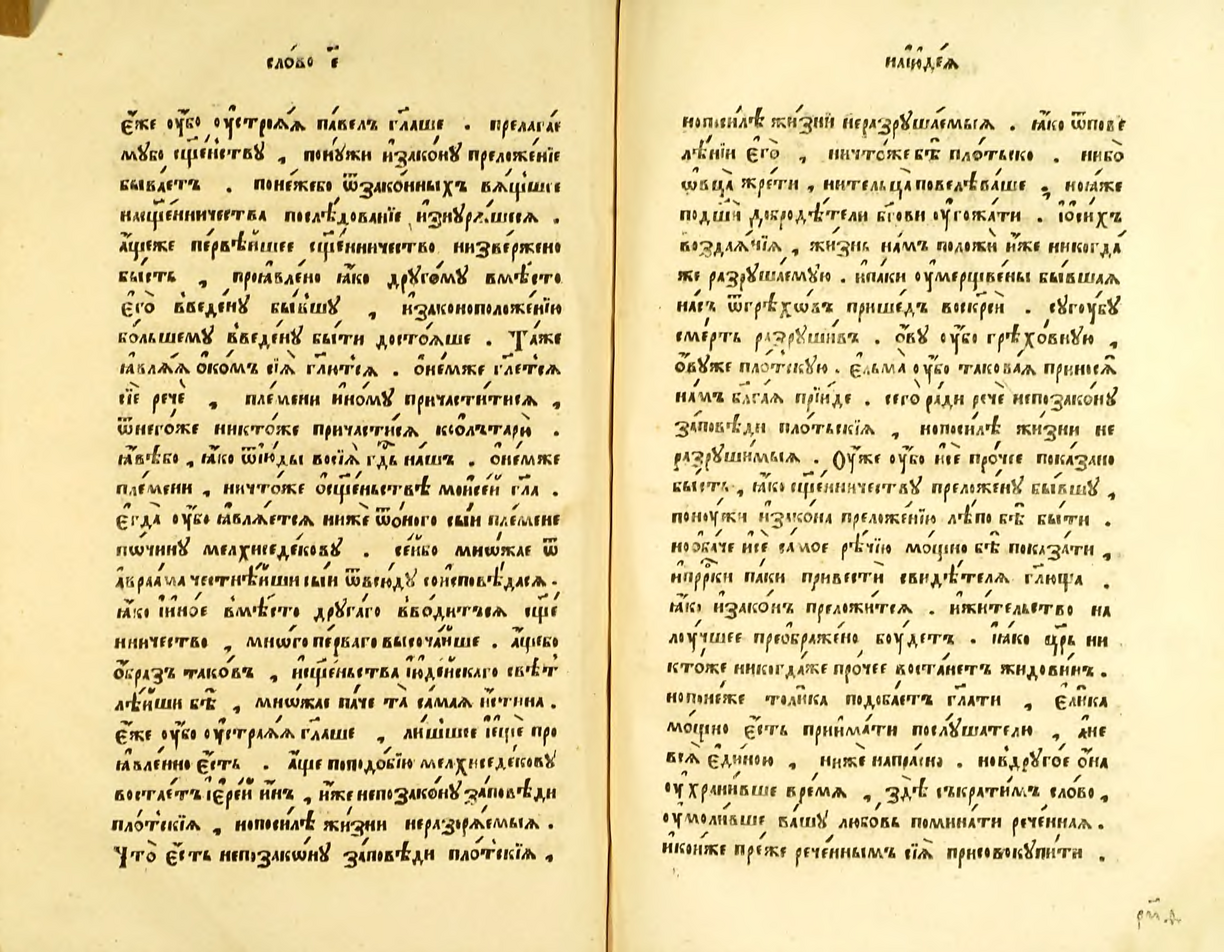 сло́во є҃
є҆́же ᲂу҆́бо ᲂу҆строѧ́ѧ па́велъ гл҃аше . прелага́е
мꙋбо сщ҃е́нствꙋ , понꙋ́жи и҆зако́нꙋ преложе́нїе
быва́етъ . поне́жебо ѿзако́нныхъ вѧ́щшее
насщ҃е́нничества послѣ́дованїе и҆знꙋрѧ́шесѧ .
а҆́щеже первѣ́йшее сщ҃е́нничество низве́ржено
бы́сть , проꙗвле́но ꙗ҆́ко дрꙋго́мꙋ вмѣ́сто
є҆го̀ введе́нꙋ бы́вшꙋ , и҆законоположе́нїю
бо́льшемꙋ введе́нꙋ бы́ти досто́ѧше . Та́же
ꙗ҆влѧ́ѧ ѻ҆ко́мъ сїѧ̀ гл҃ютсѧ . ѻ҆не́мже гл҃етсѧ
сїѐ речѐ , пле́мени и҆но́мꙋ причасти́тисѧ ,
ѿнего́же никто́же причасти́сѧ ксѻлтарю̀ .
ꙗ҆́вѣбо , ꙗ҆́ко ѿїю҆́ды восїѧ̀ гд҇ь на́шъ . ѻ҆не́мже
пле́мени , ничто́же ѻ҆сщ҃е́ньствѣ мѻѷсе́й гл҃а .
є҆гда̀ ᲂу҆́бо ꙗ҆влѧ́етсѧ ниже ѿо́ного сы́й пле́мене
почи́нꙋ мелхиседе́ковꙋ . се́йбо мно́жае ѿ
а҆враа́ма честнѣ́йши сы́й ѿвсю́дꙋ соисповѣ́дасѧ .
ꙗ҆́ко и҆и҆но́е вмѣ́сто дрꙋга́го вво́дитъсѧ сщ҃е
нничество , мно́го пе́рваго высоча́йше . а҆́щебо
ѻ҆́бразъ тако́въ , и҆сщ҃е́ньства і҆ꙋде́йскаго свѣ́т
лѣ́йши бѣ̀ , мно́жае па́че та̀ са́маѧ и҆́стина .
є҆́же ᲂу҆́бо ᲂу҆строѧ́ѧ гл҃аше , ли́шшее і҆є҆щѐ про
ꙗвле́нно є҆́сть . а҆́ще поподо́бїю мелхиседе́ковꙋ
воста́етъ і҆ере́й и҆́нъ , и҆́же непозако́нꙋ за́повѣди
пло́тскїѧ , нопоси́лѣ жи́зни неразорѧ́емыѧ .
Что̀ є҆́сть непозако́нꙋ за́повѣди пло́тскїѧ ,
нлі҆ю҆де́ѧ
нопоси́лѣ жи́знїи неразрꙋша́емыѧ . ꙗ҆́ко ѿпове
лѣ́нїи є҆гѡ̀ , ничто́же бѣ̀ пло́тьско . ни́бо
ѻ҆вца̀ жре́ти , нительца̀ повелѣ́ваше , ноꙗ҆́же
подш҃и добродѣ́тели бг҃ови ᲂу҆гожа́ти . і҆ѻси́хъ
воздаѧ́нїѧ , жи́знь на́мъ положѝ и҆́же никогда́
же разрꙋша́емꙋю . и҆па́ки ᲂу҆мерщве́ны бы́вшаѧ
на́съ ѿгрѣ́хѡвъ прише́дъ воскресѝ . сꙋгꙋ́бꙋ
сме́рть разрꙋши́въ . ѻ҆́вꙋ ᲂу҆́бо грѣхо́внꙋю ,
ѻ҆́вꙋже пло́тскꙋю . є҆́льма ᲂу҆́бо такова́ѧ приносѧ̀
на́мъ бл҃га́ѧ прїи́де . сего̀ ра́ди речѐ непозако́нꙋ
за́повѣди пло́тьскїѧ , нопоси́лѣ жи́зни не
разрꙋши́мыѧ . Оу҆́же ᲂу҆́бо и҆сѐ про́чее пока́зано
бы́сть , ꙗ҆́ко сщ҃е́нничествꙋ преложе́нꙋ бы́вшꙋ ,
понꙋ́жи и҆зако́на преложе́нїю лѣ́по бѣ̀ бы́ти .
нооба́че и҆сѐ са́мое рѣ́чїю мо́щно бѣ̀ показа́ти ,
и҆прⷪ҇рки па́ки привестѝ свидѣ́телѧ гл҃юща .
ꙗ҆́ко и҆зако́нъ прело́житсѧ . и҆жи́тельство на
лꙋ́чшее преображе́но бꙋ́детъ . і҆ꙗ҆́ко цр҃ь ни
кто́же никогда́же про́чее воста́нетъ жидови́нъ .
нопоне́же толи́ка подоба́етъ гл҃ати , є҆ли́ка
мо́щно є҆́сть прїима́ти послꙋ́шателю , а҆не
всѧ̀ є҆ди́ною , ниже напра́сно . новдрꙋго́е ѻ҆на̀
ᲂу҆храни́вше вре́мѧ , здѣ̀ съкрати́мъ сло́во ,
ᲂу҆моли́вше ва́шꙋ любо́вь помина́ти рече́ннаѧ .
и҆коиже пре́же рече́ннымъ сїѧ̀ присовокꙋпи́ти .